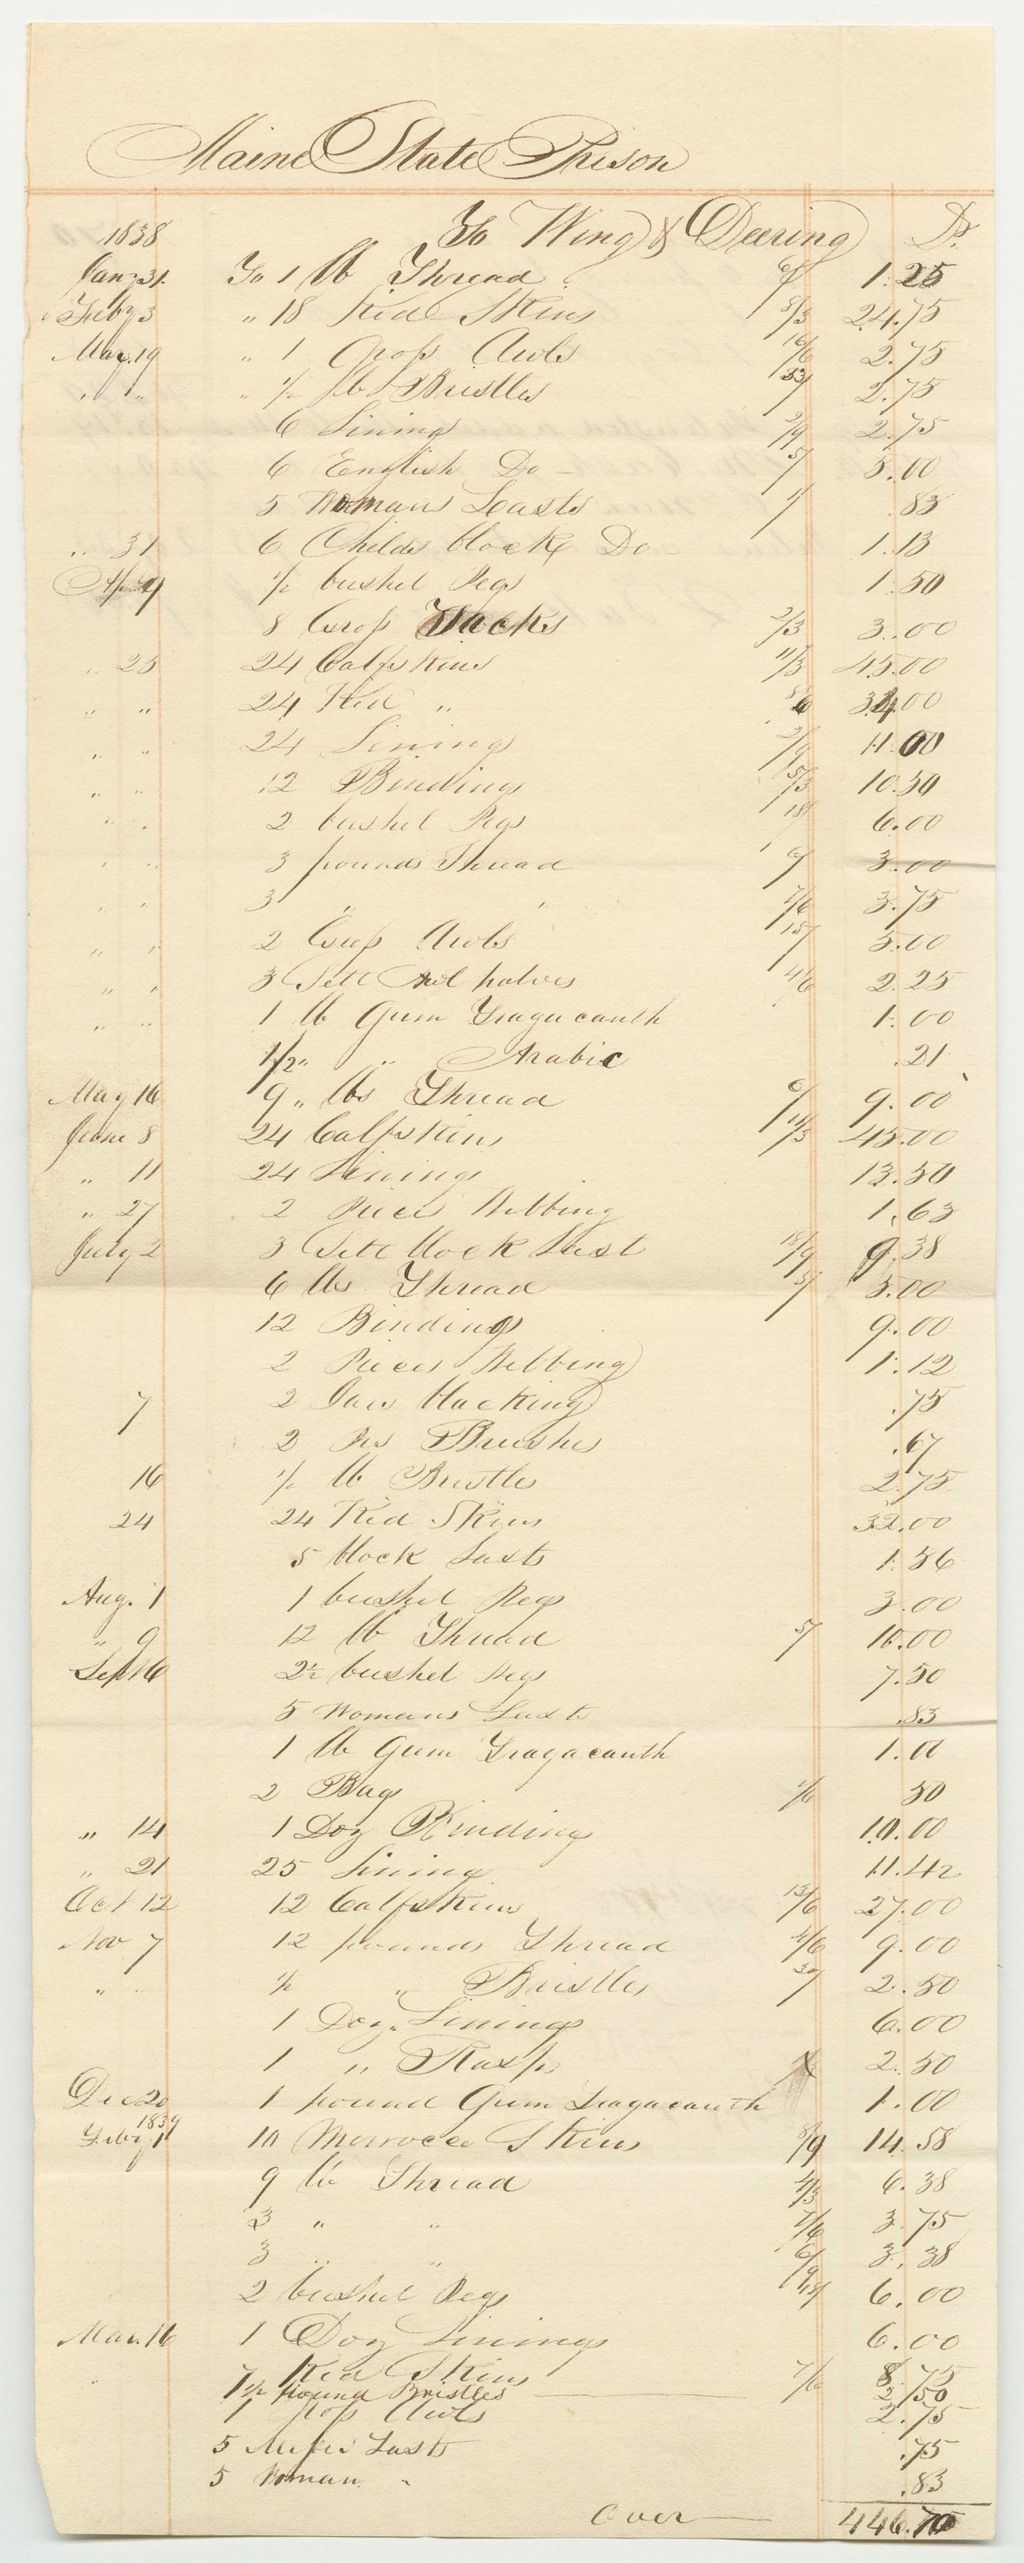 Maine State Prison
1838 To Wing & Deering Dr.
Jany 31. To 1 lb Thread 6/ 1.25
Feby 3 " 18 Kid Skins 8/3 24.75
Mar. 19 " 1 Gross Awls 16/6 2.75
" " " 1/2 lb Bristles 33/ 2.75
6 Linings 2/9 2.75
6 English Do - 5/ 5.00
5 Womans Lasts 1/ .83
" 31 6 Childs block Do 1.13
Apr 9 1/2 bushel Pegs 1.50
8 Gross Tacks 2/3 3.00
" 25 24 Calfskins 11/3 45.00
" " 24 Kid " 8/6 34.00
" " 24 Linings 2/9 11.00
" " 12 Bindings 5/3 10.50
" " 2 bushel Pegs 18/ 6.00
" " 3 pounds Thread 6/ 3.00
" " 3 " " 7/6 3.75
" " 2 Gross Awls 15/ 5.00
" " 3 Sett Awl halves 4/6 2.25
" " 1 lb Gum Tragacanth 1.00
1/2 " " Arabic .21
May 16 9 " lbs Thread 6/ 9.00
June 8 24 Calfskins 11/3 45.00
" 11 24 Linings 13.50
" 27 2 Pieces Webbing 1.63
July 2 3 Sett block Last 18/9 9.38
6 lbs Thread 5/ 5.00
12 Bindings 9.00
2 Pieces Webbing 1.12
7 2 Doz blacking .75
2 Prs Brushes .67
16 1/2 lb Bristles 2.75
24 24 Kid Skins 32.00
5 block Lasts 1.56
Aug. 1 1 bushel Pegs 3.00
" 9 12 lb Thread 5/ 10.00
Sept 6 2 1/2 bushel Pegs 7.50
5 Womans Lasts .83
1 lb Gum Tragacanth 1.00
2 Bags 1/6 50
" 14 1 Doz Bindings 10.00
" 21 25 Lining 11.42
Oct 12 12 Calfskins 13/6 27.00
Nov 7 12 pounds Thread 4/6 9.00
" " 1/2 " Bristles 30/ 2.50
1 Doz. Linings 6.00
1 " Rasps 2.50
Dec 20 1 pound Gum Tragacanth 1.00
1839
Feby 1 10 Morrocco Skins 8/9 14.58
9 lb Thread 4/3 6.38
3 " " 7/6 3.75
3 " " 6/9 3.38
2 bushel Pegs 18/ 6.00
Mar. 16 1 Doz Linings 6.00
7 Kid Skins 7/6 8.75
1/2 Pound Bristles 2.50
1 Gross Awls 2.75
5 Lasts .75
5 Woman " .83
Over 446.70